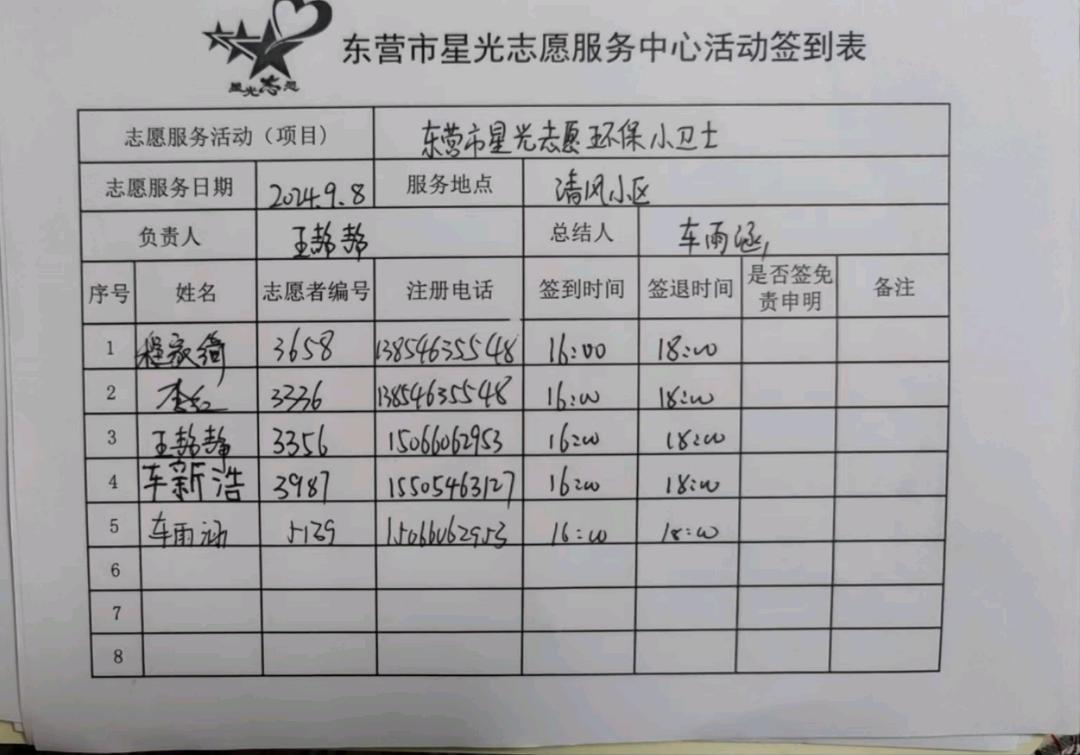 星光志愿
东营市星光志愿服务中心活动签到表
志愿服务活动（项目） 东营市星光志愿环保小卫士
志愿服务日期 2024.9.8 服务地点 清风小区
负责人 王静静 总结人 车雨涵
序号 姓名 志愿者编号 注册电话 签到时间 签退时间 是否签免责申明 备注
1 程家绮 3658 13854635548 16:00 18:00
2 李红 3336 13854635548 16:00 18:00
3 王静静 3356 15066062953 16:00 18:00
4 车新浩 3987 15505463127 16:00 18:00
5 车雨涵 5139 15066062953 16:00 18:00
6
7
8